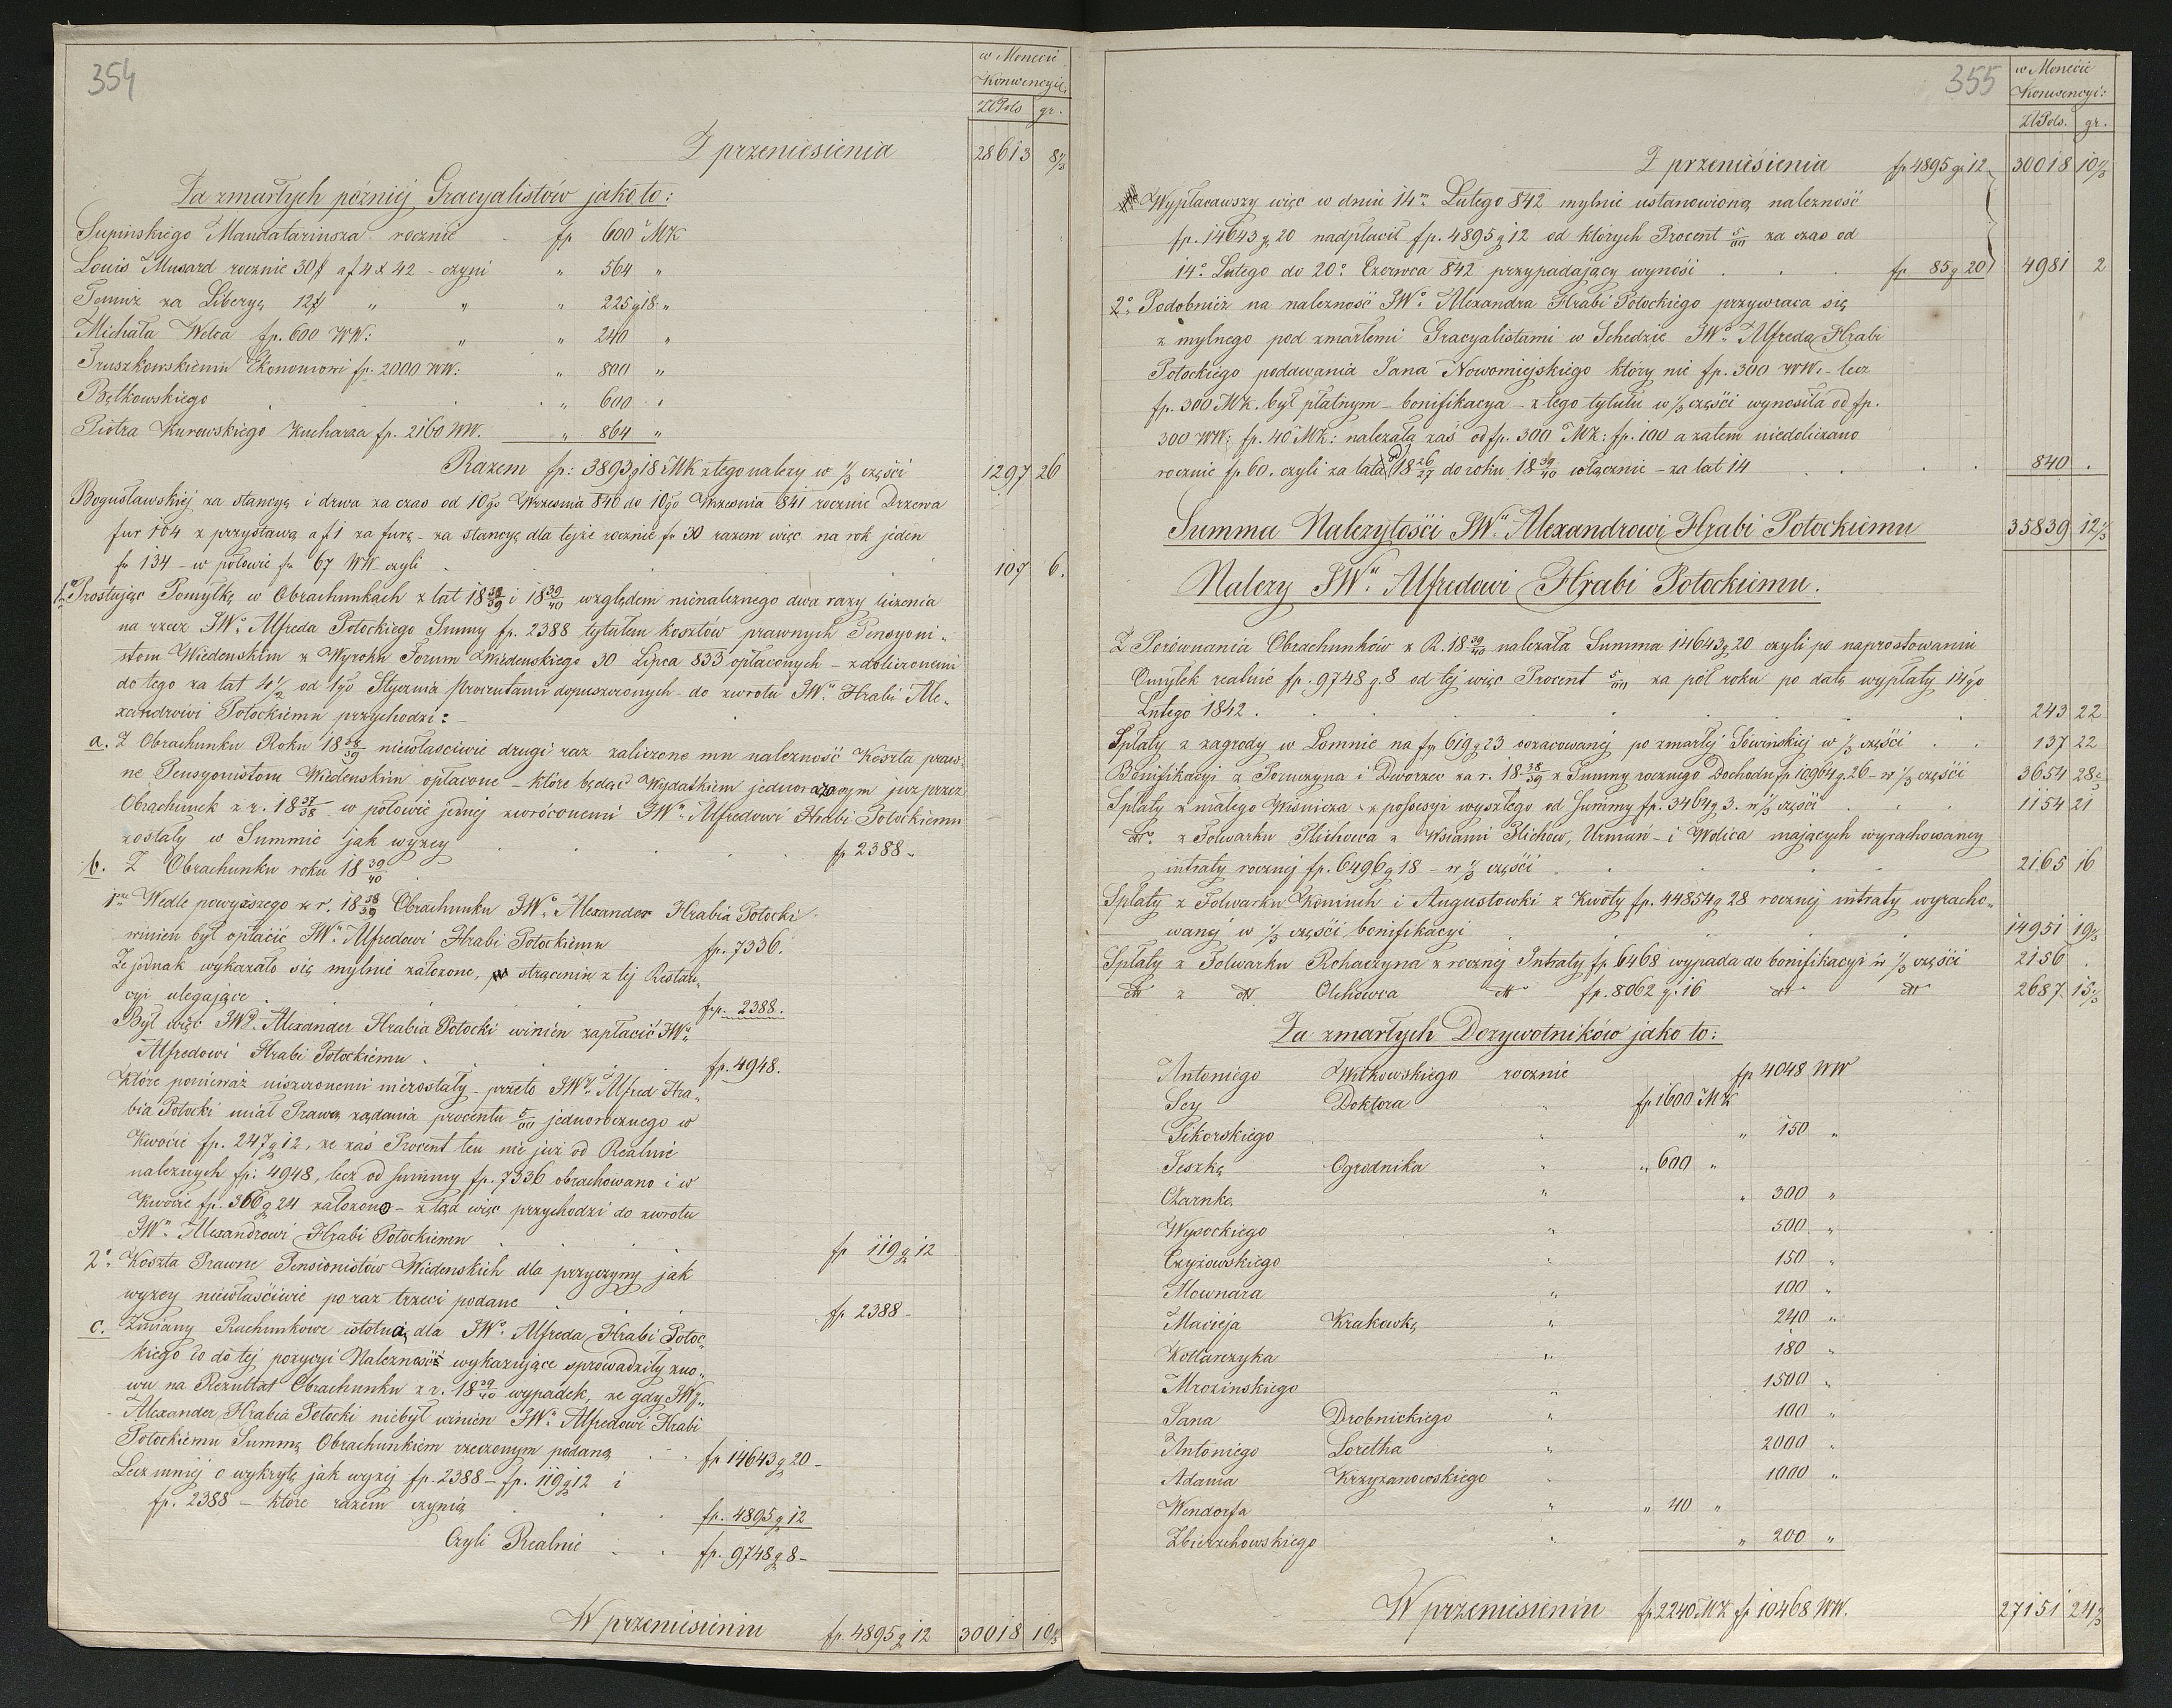 354
w Monecie
Konwencyie
ZłPols gr.
Z przeniesienia 28613 8 1/3
Za zmarłych pózniéj Gracyalistów jako to:
Supinskiego Mandatariusza rocznie fp 600 MK
Louis Musard rocznie 30# af 4 x 42 - czyni " 564 "
Temuż za Liberyę 12# " " " 225 g 18 "
Michała Welca fp. 600 WW: " " 240 "
Gruszkowskiemu Ekonomowi fp. 2000 WW: " 800 "
Bętkowskiego " 600 "
Piotra Kurowskiego Kucharza fp. 2160 WW. " 864 "
Razem fp: 3893 g 18 MK z tego nalezy w 1/3 części 1297 26
Bogusławskiéj za stancyę i drwa za czas od 10go Września 840 do 10go Września 841 rocznie Drzewa
fur 104 z przystawą af 1 za furę - za stancyę dla tejże rocznie fr 30 razem więc na rok jeden
fr 134 - w połowie fr 67 WW czyli 107 6.
1o Prostując Pomyłkę w Obrachunkach z lat 18 38/39 i 18 39/40 względem nienaleznego dwa razy liczenia
na rzecz JWo Alfreda Potockiego Summy fp. 2388 tytułem kosztów prawnych Pensyoni-
stom Wiedenskim z Wyroku Forum Wiedenskiego 30 Lipca 833 opłaconych - z doliczonemi
do tego za lat 4 1/2 od 1go Stycznia Procentami dopuszczonych - do zwrotu JWu Hrabi Ale-
xandrowi Potockiemu przychodzi: -
a. Z Obrachunku Roku 18 38/39 niewłasciwie drugi raz zaliczone mu nalezność Koszta praw-
ne Pensyonistom Wiedenskim opłacone - które będąc Wydatkiem jednorazowym juz przez
Obrachunek z r. 18 37/38 w połowie jednéj zwróconemi JWu Alfredowi Hrabi Potockiemu
zostały w Summie jak wyzey fp 2388 -
b. Z Obrachunku roku 18 39/40
1mo Wedle powyższego z r. 18 38/39 Obrachunku JWo Alexander Hrabia Potocki
winien był opłacić JWu Alfredowi Hrabi Potockiemu fp. 7336.
Ze jednak wykazało się mylnie załozone, strąceniu z téj Restan-
cyi ulegające fp. 2388.
Był więc JWy Alexander Hrabia Potocki winien zapłacić JWu
Alfredowi Hrabi Potockiemu fp. 4948.
Które ponieważ uiszczonemi niezostały - przeto JWy Alfred Hra-
bia Potocki miał Prawo ządania procentu 5/00 jednorocznego w
Kwocie fp. 247 g 12, ze zaś Procent ten nie już od Realnie
naleznych fp: 4948, lecz od summy fp. 7336 obrachowano i w
Kwocie fp. 366 g 24 załozono - z tąd więc przychodzi do zwrotu
JWu Alexandrowi Hrabi Potockiemu fp 119 g 12
2o Koszta Prawne Pensionistów Wiedenskich dla przyczyny jak
wyzey niewłaściwie po raz trzeci podane fp 2388 -
c. Zmiany Rachunkowe istotną dla JWo Alfreda Hrabi Potoc-
kiego co do téj pozycyi Nalezność wykazujące sprowadziły zno-
wu na Rezultat Obrachunku z r. 18 39/40 wypadek, ze gdy JWy
Alexander Hrabia Potocki niebył winien JWu Alfredowi Hrabi
Potockiemu Summę Obrachunkiem rzeczonym podaną fp 14643 g 20 -
Lecz mniéj o wykrytę jak wyzéj fp. 2388 - fp. 119 g 12 i
fp. 2388 - które razem czynią fp. 4895 g 12
Czyli Realnie fp. 9748 g 8 -
W przeniesieniu fp. 4895 g 12 30018 10 1/3
355
w Monecie
Konwencyi:
ZłPols. gr.
Z przeniesienia fp 4895 gr 12 30018 10 1/3
Wypłacawszy więc w dniu 14m Lutego 842 mylnie ustanowioną nalezność
fp. 14643 g 20 nadpłacił fp. 4895 g 12 od których Procent 5/00 za czas od
14o Lutego do 20o Czerwca 842 przypadający wynosi fp 85 g 20 4981 2
2o Podobnież na nalezność JWo Alexandra Hrabi Potockiego przywraca się
z mylnego pod zmarłemi Gracyalistami w Schedzie JWo Alfreda Hrabi
Potockiego podawania Jana Nowomiejskiego który nie fp. 300 WW. - lecz
fp. 300 MK. był płatnym - bonifikacya - z tego tytułu w 1/3 części wynosiła od fp.
300 WW: fp. 40 MK: nalezała zaś od fp. 300 MK: fp. 100 a zatem niedoliczano
rocznie fp 60. czyli za lata od 18 26/27 do roku 18 39/40 włącznie - za lat 14 840 .
Summa Nalezytości JWu Alexandrowi Hrabi Potockiemu 35839 12 1/3
Nalezy JWu Alfredowi Hrabi Potockiemu.
Z Porównania Obrachunków z R. 18 39/40 nalezała Summa 14643 g 20 czyli po naprostowaniu
Omyłek realnie fp. 9748 g. 8 od téj więc Procent 5/00 za pół roku po datę wypłaty 14go
Lutego 1842. 243 22
Spłaty z zagrody w Łomnie na fp 619 g 23 oszacowanéj po zmarłéj Sowinskiéj w 1/3 części 137 22
Bonifikacyi z Poruczyna i Dworzec za r. 18 38/39 z Summy rocznego Dochodu fp 10964 g. 26 - w 1/3 części 3654 28 2/3
Spłaty z małego Wiśnicza z possesyi wyszłego od Summy fp. 3464 g 3. w 1/3 części 1154 21
dtto z Folwarku Plichowca z Wsiami Plichów, Urmań - i Wolica mających wyrachowaney
intraty rocznéj fp. 6496 g 18 - w 1/3 części 2165 16
Spłaty z Folwarku Koniuch i Augustowki z Kwoty fp. 44854 g 28 rocznéj intraty wyracho-
wanéj w 1/3 części bonifikacyi 14951 19 1/3
Spłaty z Folwarku Rohaczyna z rocznéj Intraty fp. 6468 wypada do bonifikacyi w 1/3 części 2156 .
dtto z dtto Olchowca dtto fp. 8062 g. 16 dtto dtto 2687 15 1/3
Za zmarłych Dozywotników jako to:
Antoniego Witkowskiego rocznie fp 4048 WW
Sey Doktora " fp 1600 MK
Sikorskiego " " 150 "
Jeszkę Ogrodnika " " 600 "
Czarnke " " 300 "
Wysockiego " 500 "
Czyzowskiego " 150 "
Mownara " 100 "
Macieja Krakowkę " 240 "
Kotlarczyka " 180 "
Mrozinskiego " 1500 "
Jana Drobnickiego " 100 "
Antoniego Loretha " 2000 "
Adama Krzyzanowskiego " 1000 "
Wendorfa " " 40 "
Zbierzchowskiego " " 200 "
W przeniesieniu fp 2240 MK fp 10468 WW. 27151 24 1/3